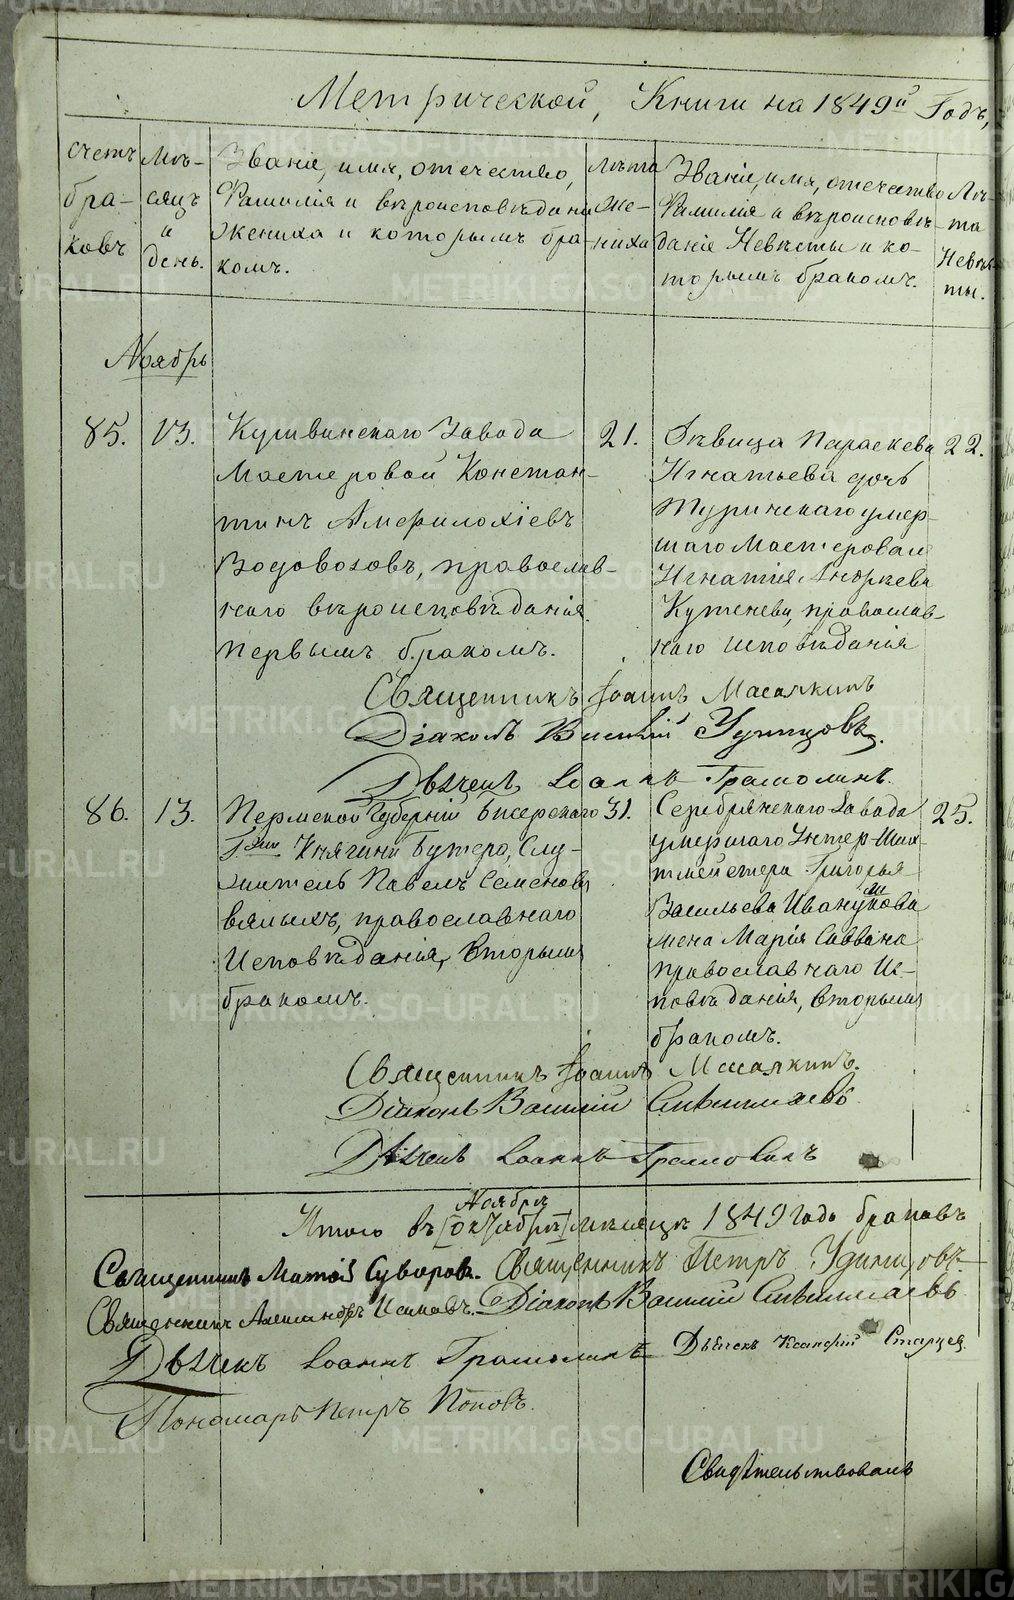 Метрической Книги на 1849й Годъ,
счетъ браковъ
Мѣсяцъ и день.
Званіе, имя, отечество, Фамилія и вѣроисповѣданіе жениха и которымъ бракомъ.
лѣта жениха
Званіе, имя, отечество Фамилія и вѣроисповѣданіе Невѣсты и которымъ бракомъ.
Лѣта Невѣсты.
Ноябрь
85.
13.
Кушвинскаго Завода
Мастеровой Констан-
тинъ Амфилохіевъ
Водовозовъ, православ-
наго вѣроисповѣданія
первымъ бракомъ.
21.
Дѣвица Параскева
Игнатьева дочь
Туринскаго умер-
шаго Мастероваго
Игнатія Андреева
Кутенева, православ-
наго исповѣданія
22.
Священникъ Іоаннъ Масаякинъ
Діаконъ Василій Удинцовъ.
Дьячекъ Іоаннъ Грамолинъ.
86.
13.
Пермской Губерніи Бисерскаго
Г-жи Княгини Бутеро, Слу-
житель Павелъ Семеновъ
Вялыхъ, православнаго
Исповѣданія, вторымъ
бракомъ.
31.
Серебрянскаго Завода
умершаго Унтер-Ших-
тмейстера Григорья
Васильева Иванукова
жена Марія Саввина
православнаго Ис-
повѣданія, вторымъ
бракомъ.
25.
Священникъ Іоаннъ Масаякинъ.
Діаконъ Василій
Дьячекъ Іоаннъ Грамолинъ
Ноябрѣ
Итого въ [Октябрѣ] мѣсяцѣ 1849 года браковъ
Священникъ Матѳій Суворовъ. Священникъ Петръ Удинцовъ.
Священникъ Александръ Діаконъ Василій
Дьячекъ Іоаннъ Грамолинъ Дьячекъ Старцев
Пономарь Петръ Поповъ.
Свидѣтельствовалъ
METRIKI.GASO-URAL.RU